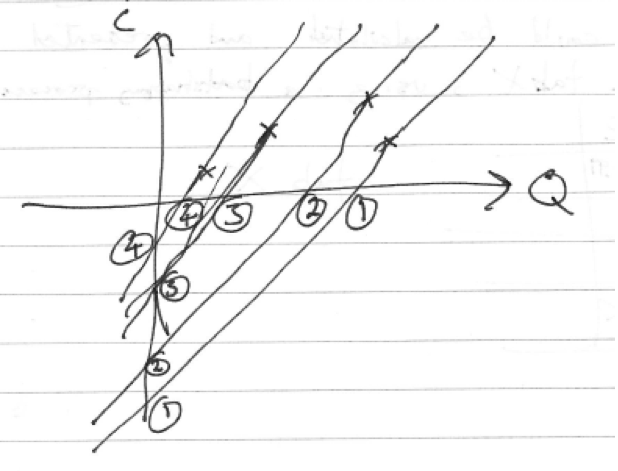 C
Q
④ ③ ② ①
④
③
②
①